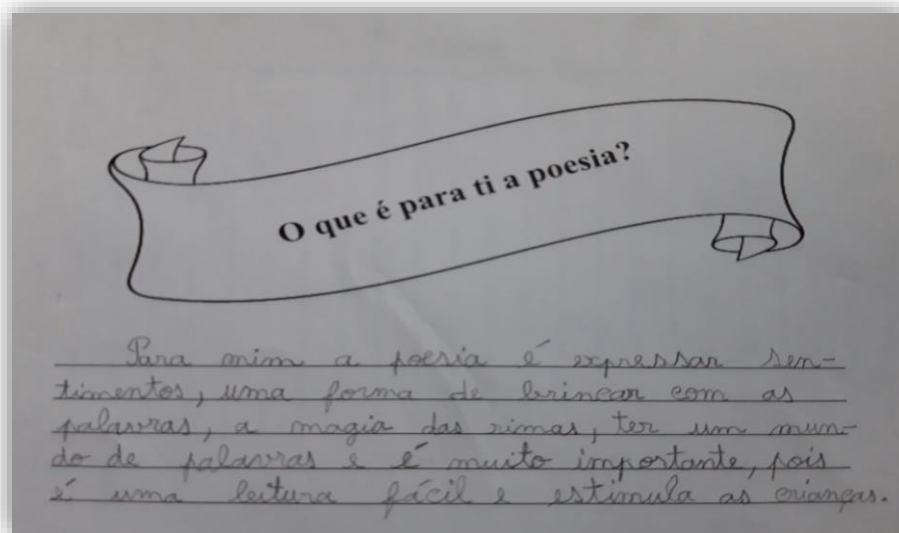 O que é para ti a poesia?
Para mim a poesia é expressar sen-
timentos, uma forma de brincar com as
palavras, a magia das rimas, ter um mun-
do de palavras e é muito importante, pois
é uma leitura fácil e estimula as crianças.